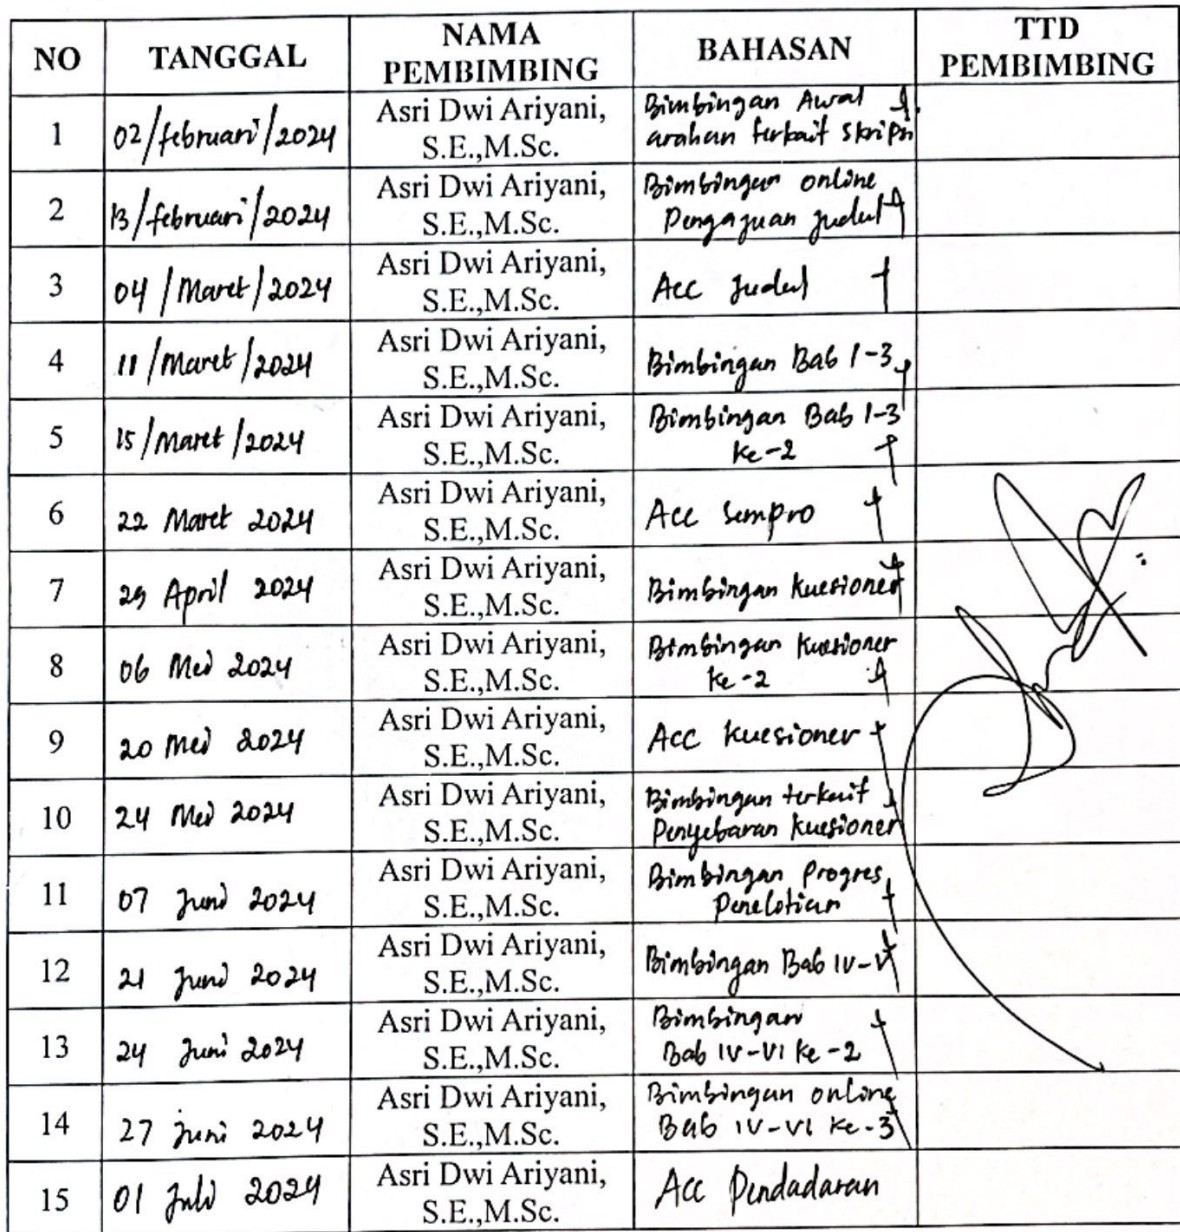 NO TANGGAL NAMA PEMBIMBING BAHASAN TTD PEMBIMBING
1 02/februari/2024 Asri Dwi Ariyani, S.E.,M.Sc. Bimbingan Awal arahan terkait skripsi
2 13/februari/2024 Asri Dwi Ariyani, S.E.,M.Sc. Bimbingan online Pengajuan Judul
3 04/Maret/2024 Asri Dwi Ariyani, S.E.,M.Sc. Acc Judul
4 11/Maret/2024 Asri Dwi Ariyani, S.E.,M.Sc. Bimbingan Bab 1-3
5 15/Maret/2024 Asri Dwi Ariyani, S.E.,M.Sc. Bimbingan Bab 1-3 ke-2
6 22 Maret 2024 Asri Dwi Ariyani, S.E.,M.Sc. Acc Sempro
7 29 April 2024 Asri Dwi Ariyani, S.E.,M.Sc. Bimbingan Kuesioner
8 06 Mei 2024 Asri Dwi Ariyani, S.E.,M.Sc. Bimbingan Kuesioner ke-2
9 20 Mei 2024 Asri Dwi Ariyani, S.E.,M.Sc. Acc Kuesioner
10 24 Mei 2024 Asri Dwi Ariyani, S.E.,M.Sc. Bimbingan terkait Penyebaran Kuesioner
11 07 Juni 2024 Asri Dwi Ariyani, S.E.,M.Sc. Bimbingan Progres Penelitian
12 21 Juni 2024 Asri Dwi Ariyani, S.E.,M.Sc. Bimbingan Bab IV-V
13 24 Juni 2024 Asri Dwi Ariyani, S.E.,M.Sc. Bimbingan Bab IV-VI ke-2
14 27 Juni 2024 Asri Dwi Ariyani, S.E.,M.Sc. Bimbingan online Bab IV-VI ke-3
15 01 Juli 2024 Asri Dwi Ariyani, S.E.,M.Sc. Acc Pendadaran